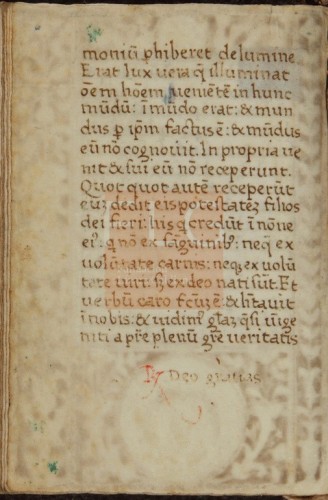 moniũ ꝑhiberet de lumine
Erat lux vera q̃ illuminat
oẽm hoẽm ueniẽtẽ in hunc
mũdũ: ĩ mũdo erat: & mun
dus ꝑ ip̃m factus ẽ: & mũdus
eũ nõ cognouit. In propria ue
nit & sui eũ nõ receperunt.
Quot quot autẽ receperũt
euʒ dedit eis potestateʒ filios
dei fieri: his q̃ credũt ĩ nõne
eiꝰ: q̃ nõ ex sãguinibꝰ: neqʒ ex
uolũtate carnis: neqʒ ex uolũ
tate uiri: sʒ ex deo nati sũt. Et
uerbũ caro fc̃uʒ ẽ: & hĩtauit
ĩ nobis: & uidimꝰ gl̃aʒ q̃si ũige
niti a pr̃e plenuʒ gr̃e ueritatis
℟ Deo gratias